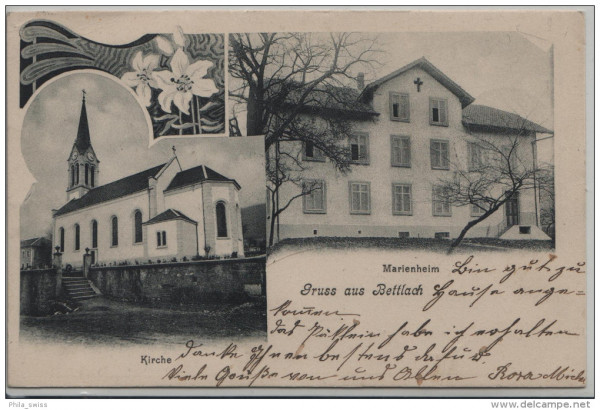 Marienheim
Gruss aus Bettlach
Kirche
Bin gut zu
Hause ange-
kommen
das Päcklein habe ich erhalten
danke Ihnen bestens dafür.
Viele Grüße von uns Allen Rosa
Phila_swiss
www.delcampe.net